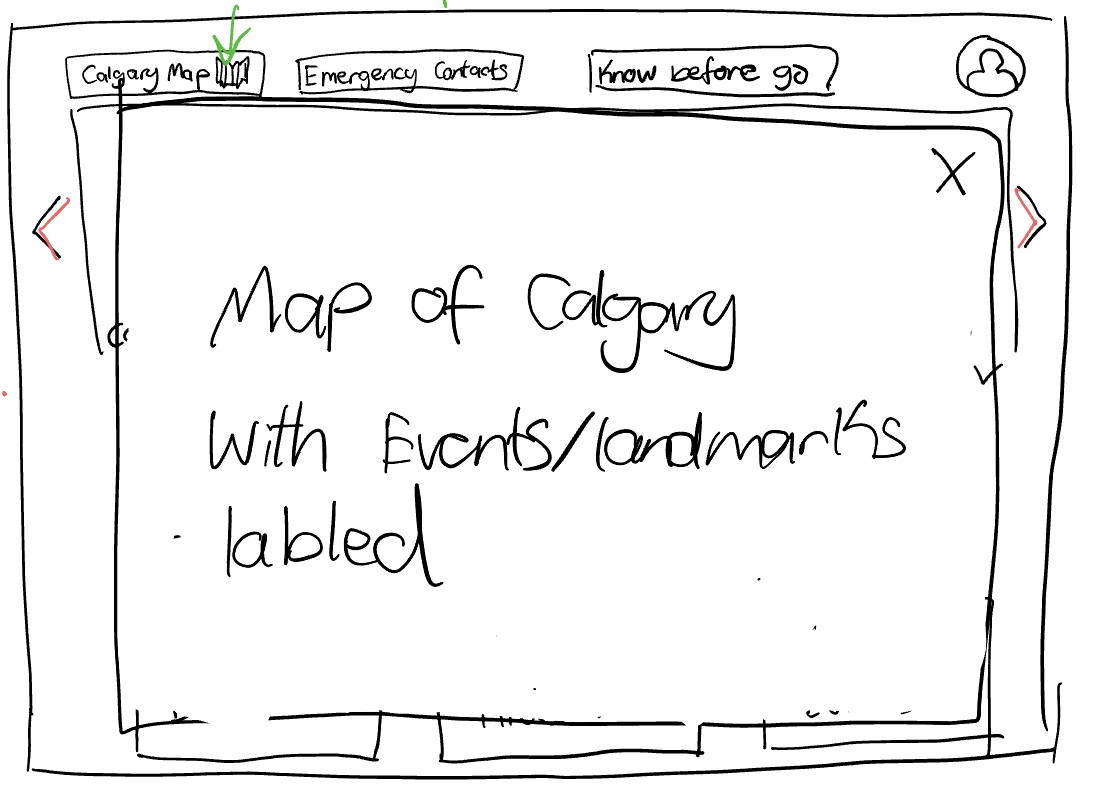 Calgary Map
Emergency Contacts
Know before go
X
Map of Calgary
With Events/landmarks
labled